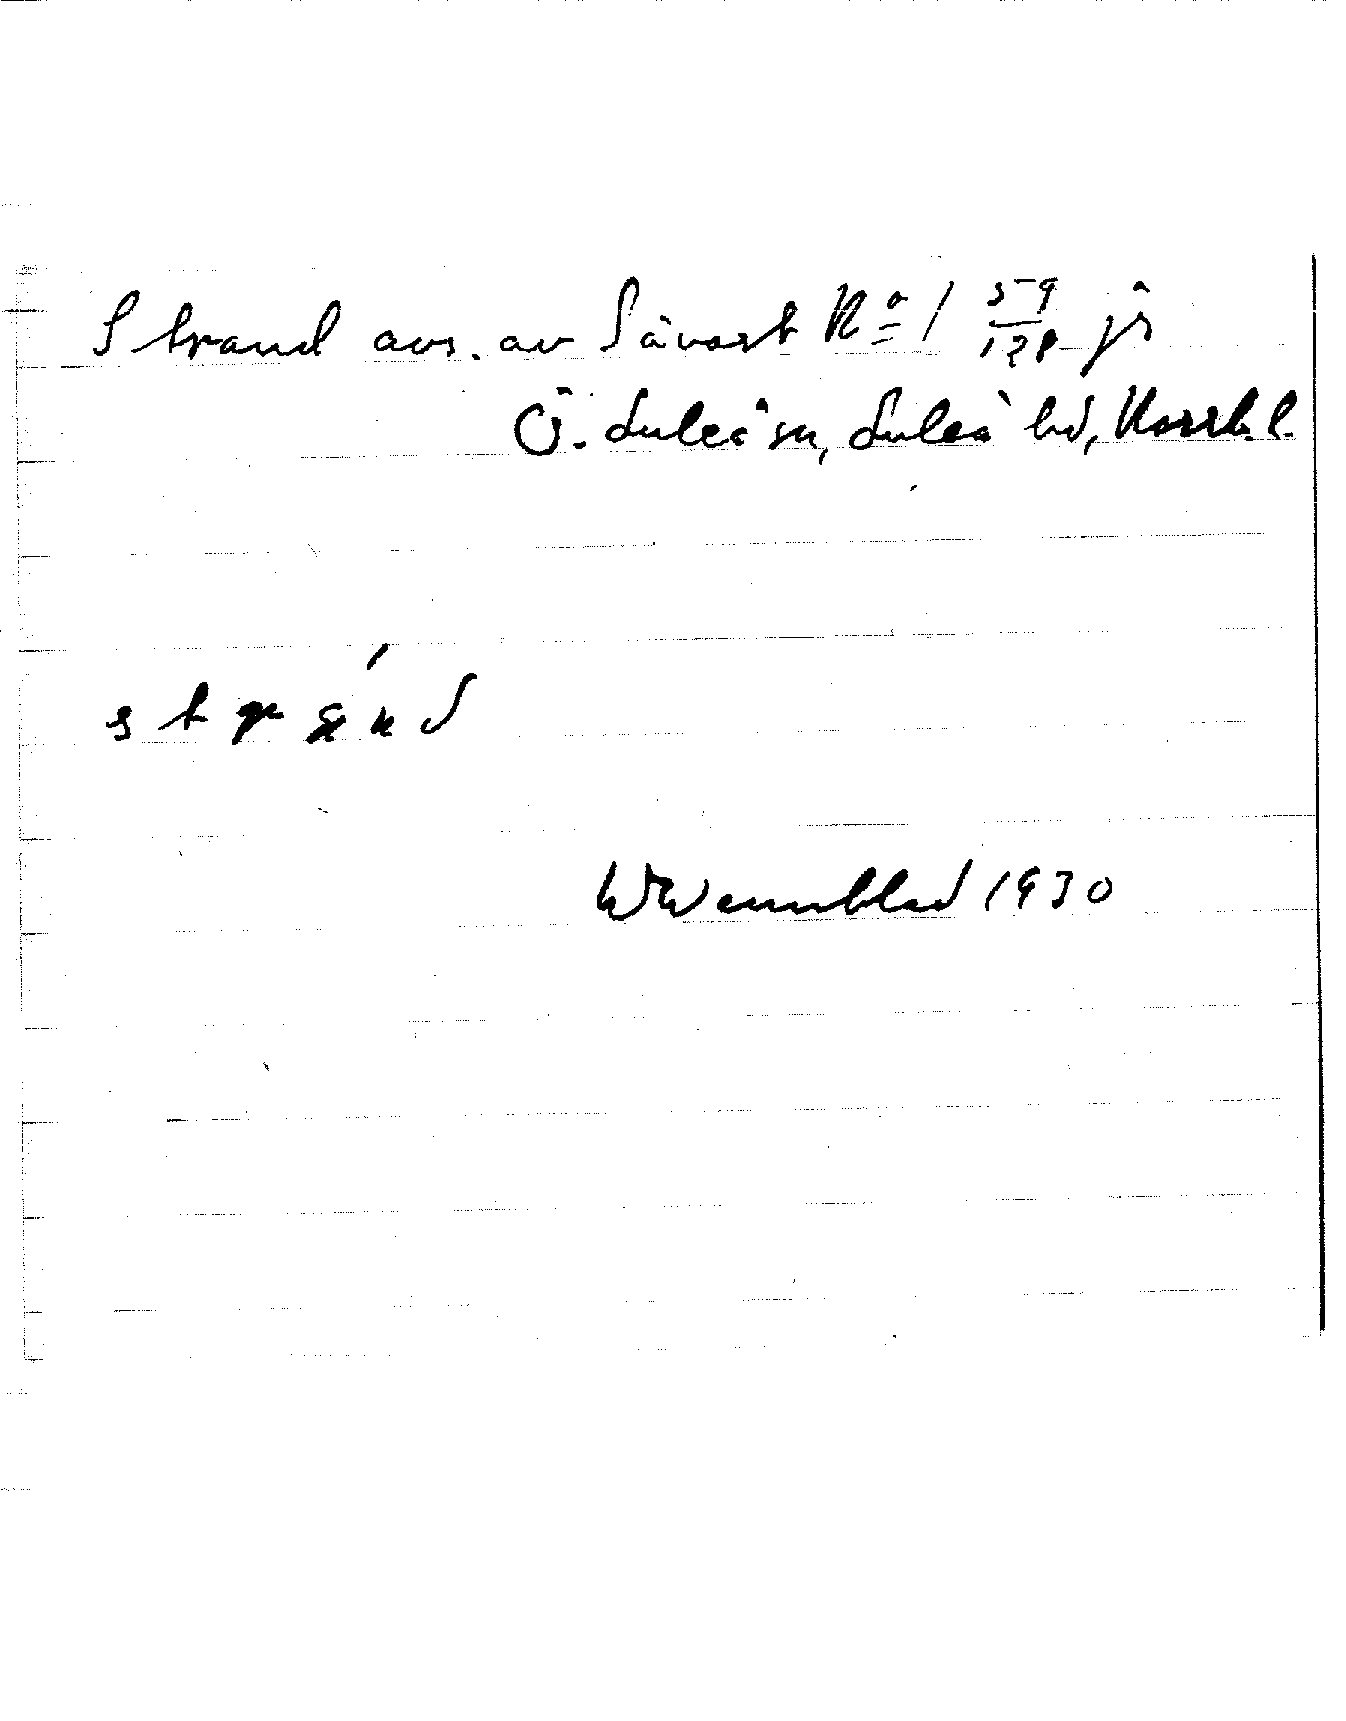 Strand avs. av Sävast No 1 59/128 js
Ö. Luleå sn, Luleå hd, Norrb. l.
s t r a n d
W Wennblad 1930